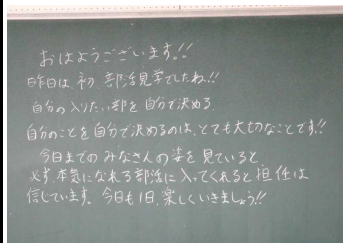 おはようございます。!!
昨日は、初 部活見学でしたね!!
自分の入りたい部を自分で決める。
自分のことを自分で決めるのは、とても大切なことです!!
今日までのみなさんの姿を見ていると、
必ず、本気になれる部活に入ってくれると担任は
信じています。今日も1日、楽しくいきましょう!!